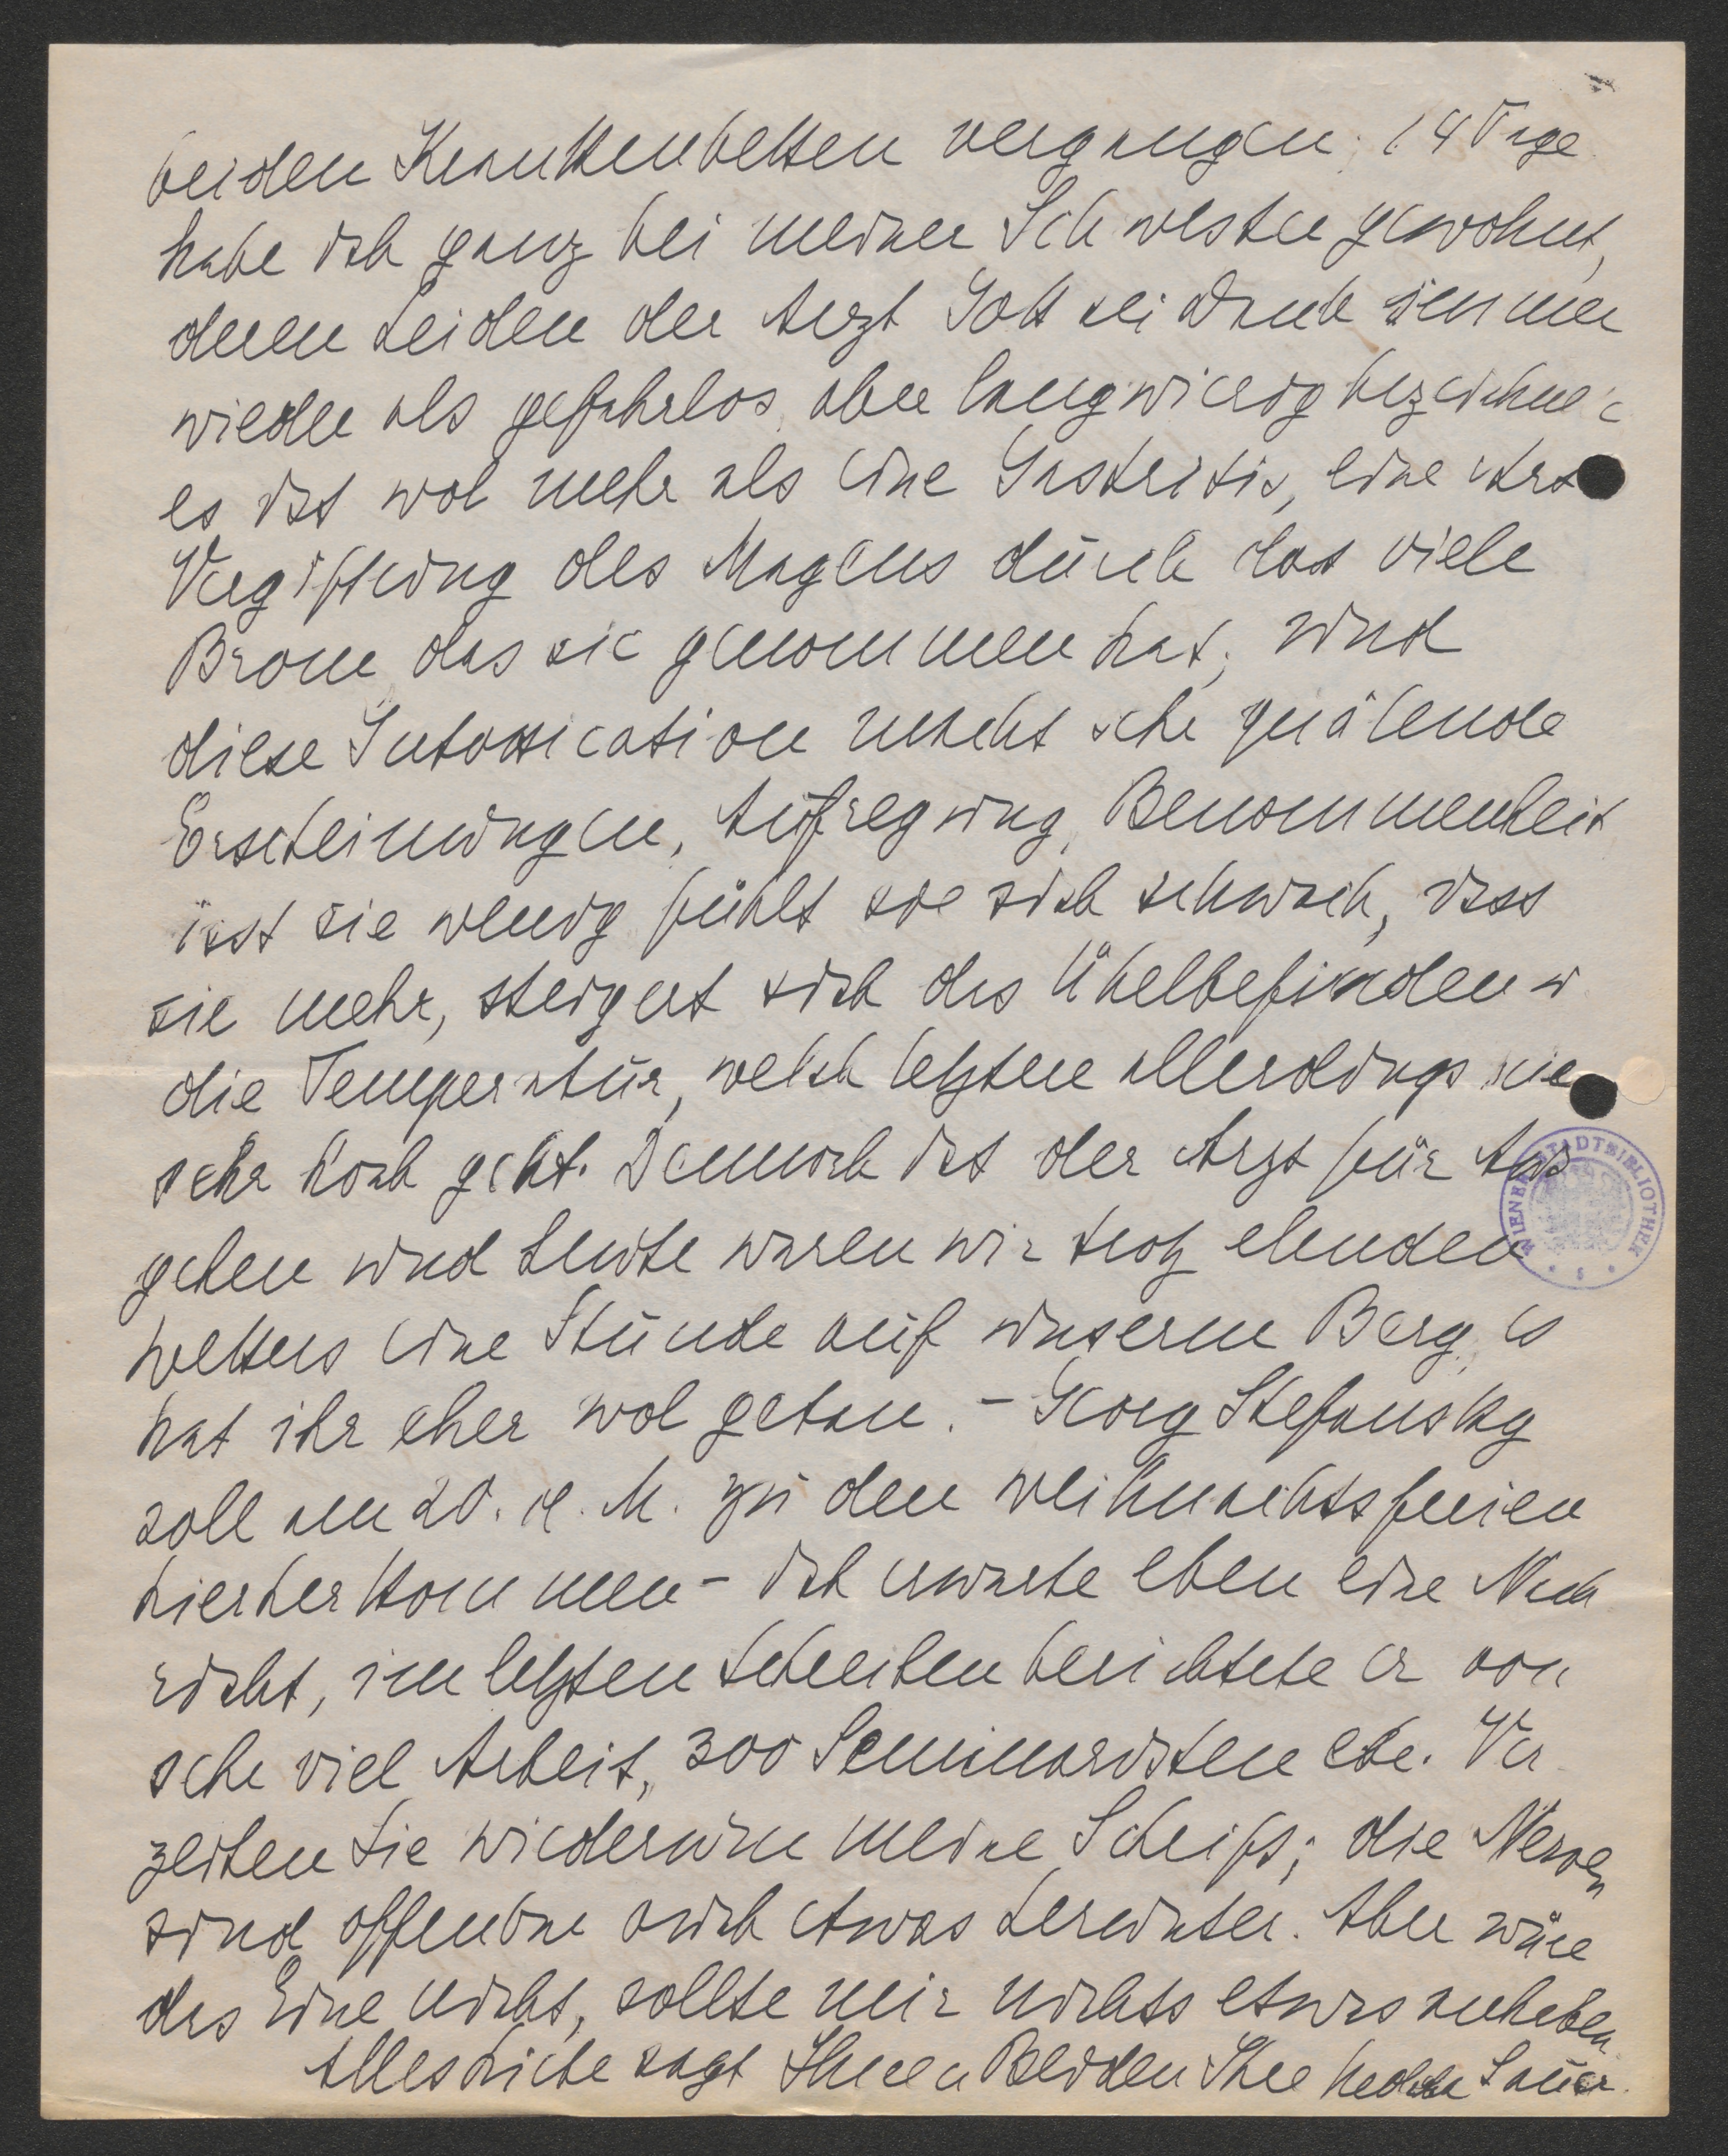 beiden Krankenbetten vergangen; 14 Tage
habe ich ganz bei meiner Schwester gewohnt,
deren Leiden der Arzt Gott sei Dank immer
wieder als gefahrlos, aber langwierig bezeichnet
es ist wol mehr als eine Gastritis, eine Art
Vergiftung des Magens durch das viele
Brom, das sie genommen hat; und
diese Intoxication macht sehr quälende
Erscheinungen, Aufregung, Benommenheit
isst sie wenig fühlt sie sich schwach, isst
sie mehr, steigert sich das Übelbefinden u
die Temperatur, welch letztere allerdings nie
sehr hoch geht. Dennoch ist der Arzt für Aus
gehen und heute waren wir trotz elenden
Wetters eine Stunde auf unserem Berg, es
hat ihr eher wol getan. – Georg Stefansky
soll am 20. d. M. zu den Weihnachtsferien
hierherkommen – ich erwarte eben eine Nach
richt, im letzten Schreiben berichtete er von
sehr viel Arbeit, 300 Seminaristen etc. Ver
zeihen Sie wiederum meine Schrift; die Nerven
sind offenbar auch etwas herunter. Aber wäre
das Eine nicht, sollte mir nichts etwas anheben.
Alles Liebe sagt Ihnen Beiden Ihre Hedda Sauer.
WIENER STADTBIBLIOTHEK